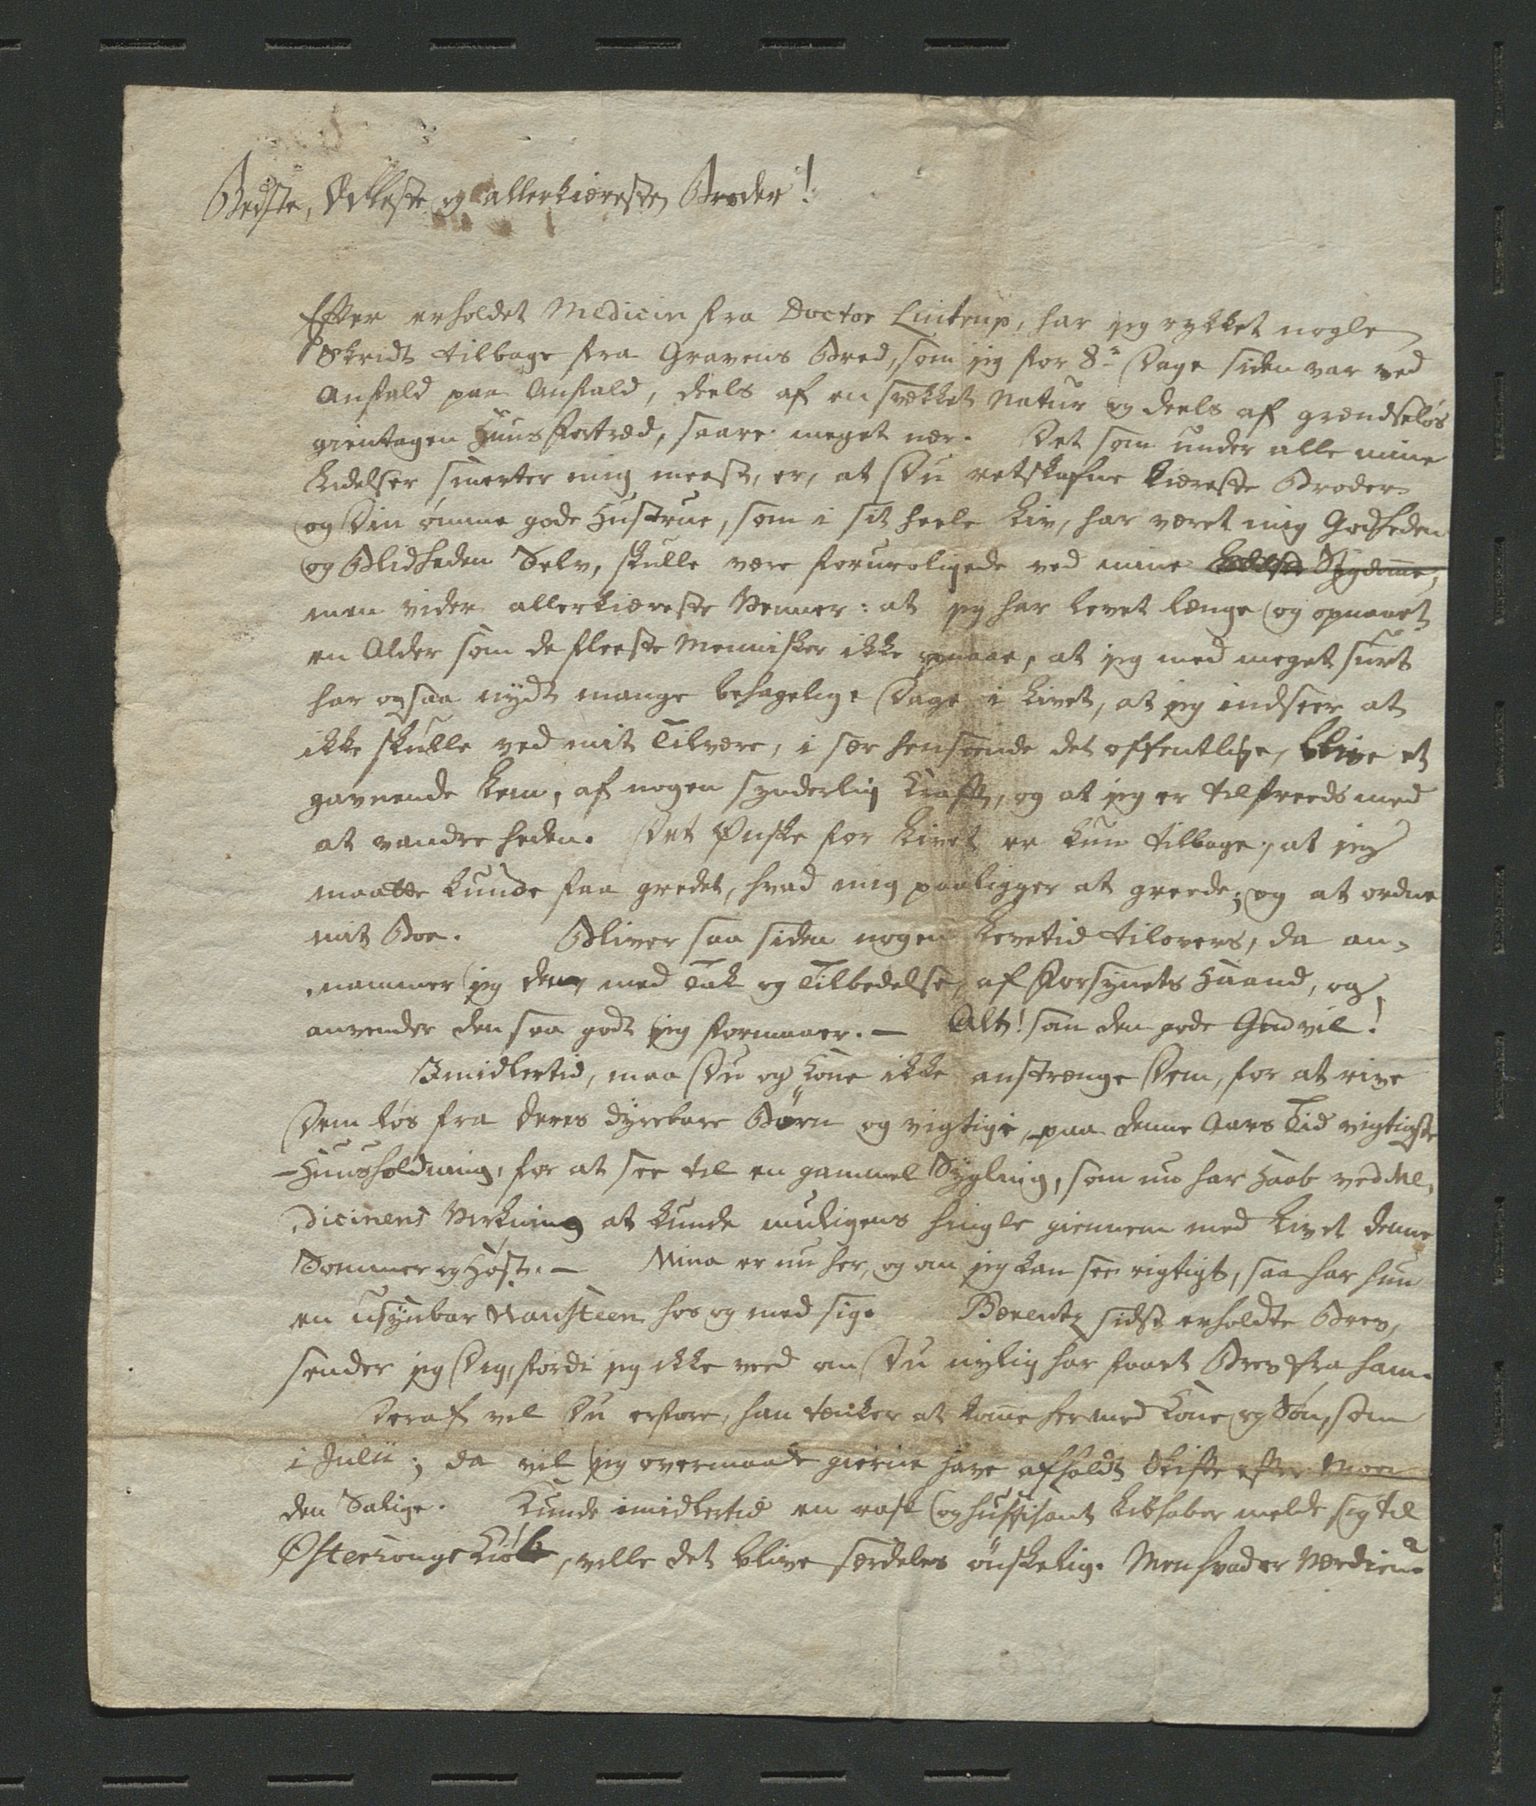 Bedste, Ædleste og allerkiæreste Broder!
Efter erholdet Medicin fra Doctor Lintrup, har jeg rykket nogle
Skridt tilbage fra Gravens Bred, som jeg for 8te Dage siden var ved
Anfald paa Anfald, deels af en svækket Natur og deels af grændseløs
gientagen Huusfortræd, saare meget nær. Det som under alle mine
Lidelser smerter mig meest, er, at Du retskafne kiæreste Broder
og Din ømme gode Hustrue, som i sit heele Liv, har været mig Godheden
og Blidheden Selv, skulle være foruroligede ved mine Sygdomme,
men vider allerkiæreste Venner: at jeg har levet længe og opnaaet
en Alder som de fleeste Mennisker ikke opnaae, at jeg med meget suurt
har ogsaa nydt mange behagelige Dage i Livet, at jeg indseer at
ikke skulle ved mit Tilvære, i sær henseende det offentlige, blive et
gavnende Lem, af nogen synderlig Kraft, og at jeg er tilfreeds med
at vandre heden. Det Ønske for Livet er kun tilbage, at jeg
maatte kunde faa greedet, hvad mig paaligger at greede; og at ordne
mit Boe. Bliver saa siden nogen Levetid tilovers, da an-
nammer jeg den, med Tak og Tilbedelse, af Forsynets Haand, og
anvender den saa godt jeg formaaer. — Alt! som den gode Gud vil!
Imidlertid, maa Du og Kone ikke anstrænge Dem, for at rive
Dem løs fra Deres dyrebare Børn og vigtige, paa denne Aars Tid vigtigste
Huusholdning, for at see til en gammel Sygling, som nu har Haab ved Me-
dicinens Virkning at kunde muligens hingle giennem med Livet denne
Sommer og Høst. — Mina er nu her, og om jeg kan see rigtigt, saa har hun
en usynbar Hansteen hos og med sig. Berentz sidst erholdte Brev,
sender jeg Dig, fordi jeg ikke veed om Du nylig har faaet Brev fra ham.
Deraf vil Du erfare, han tænker at komme her med Kone og Søn, som
i Julii; da vil jeg overmaade gierne have afholdt Skifte efter Moer
den Salige. Kunde imidlertid en rask og suffisant Liebhaber melde sig til
Østeriongs Kiøb, ville det blive særdeles ønskelig. Men hvad er Værdien?